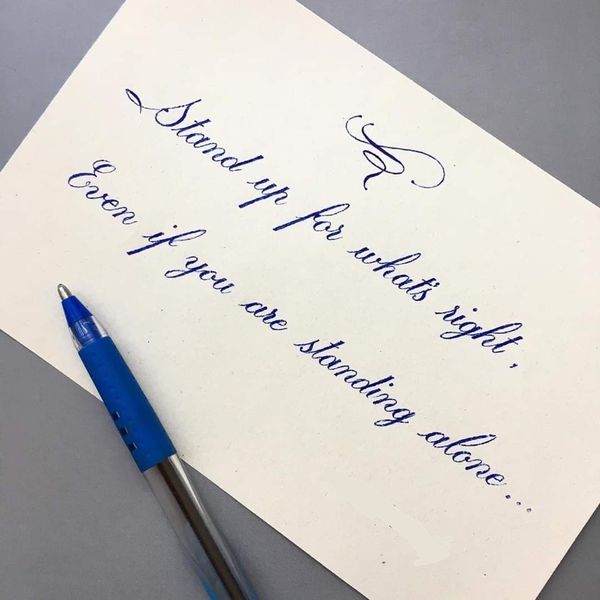 Stand up for what's right,
Even if you are standing alone...